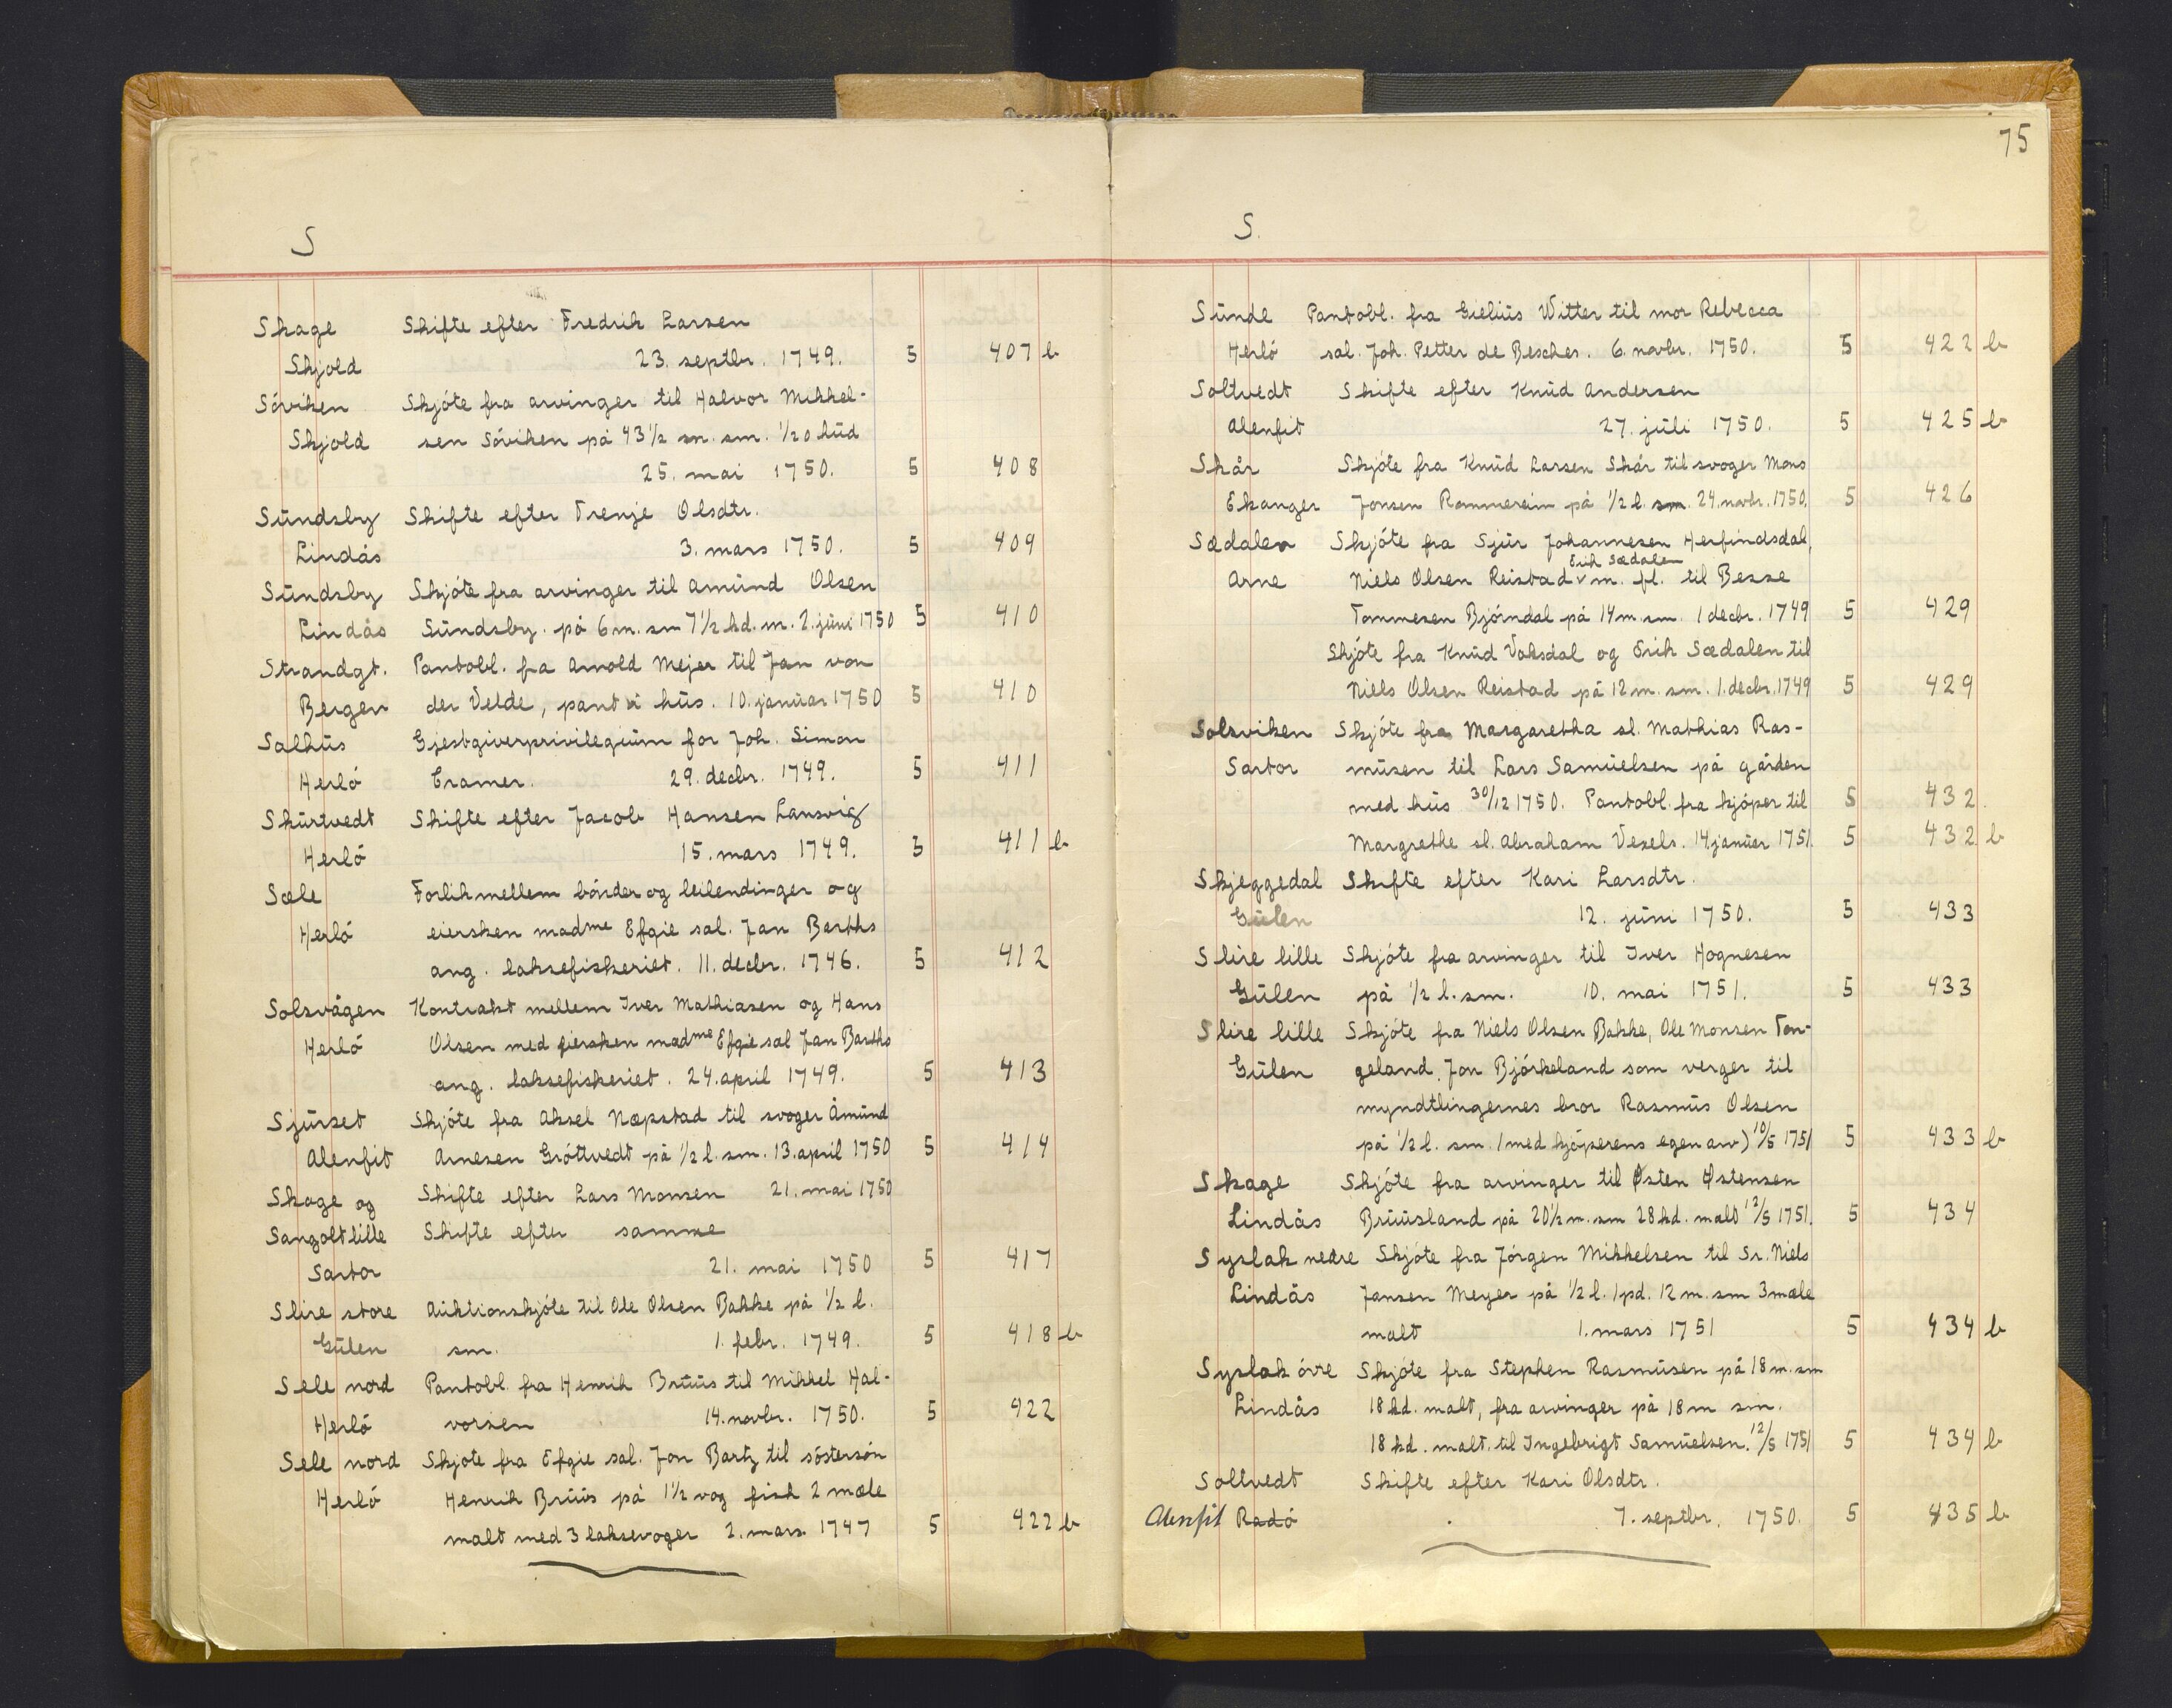 S
Skage Skifte efter Fredrik Larsen
Skjold 23. septbr. 1749. 5 407 b
Söviken Skjöte fra arvinger til Halvor Mikkel-
Skjold sen Söviken på 43 1/2 m. sm. 1/20 hŭd
25. mai 1750. 5 408
Sŭndsby Skifte efter Trenje Olsdtr.
Lindås 3. mars 1750. 5 409
Sŭndsby Skjöte fra arvinger til Amŭnd Olsen
Lindås Sŭndsby. på 6 m. sm 7 1/2 kd. m. 2. jŭni 1750 5 410
Strandgt. Pantobl. fra Arnold Mejer til Jan von
Bergen der Velde, pant i hŭs. 10. janŭar 1750 5 410
Salhŭs Gjestgiverprivilegiŭm for Joh. Simon
Herlö Cramer. 29. decbr. 1749. 5 411
Skŭrtvedt Skifte efter Jacob Hansen Lansvig
Herlö 15. mars 1749. 5 411 b
Sæle Forlik mellem bönder og leilendinger og
Herlö eiersken madme Efgie sal. Jan Barths
ang. laksefiskeriet. 11. decbr. 1746. 5 412
Solsvågen Kontrakt mellem Iver Mathiasen og Hans
Herlö Olsen med eiersken madme Efgie sal Jan Barths
ang. laksefiskeriet. 24. april 1749. 5 413
Sjŭrset Skjöte fra Aksel Næpstad til svoger Åmŭnd
Alenfit Arnesen Gröttvedt på 1/2 l. sm. 13. april 1750 5 414
Skage og Skifte efter Lars Monsen 21. mai 1750
Sangolt lille Skifte efter samme
Sartor 21. mai 1750 5 417
Slire store Aŭktionskjöte til Ole Olsen Bakke på 1/2 l.
Gŭlen sm. 1. febr. 1749. 5 418 b
Sele nord Pantobl. fra Henrik Brŭŭs til Mikkel Hal-
Herlö vorsen 14. novbr. 1750. 5 422
Sele nord Skjöte fra Efgie sal. Jon Bartz til söstersön
Herlö Henrik Brŭŭs på 1 1/2 vog fisk 2 mæle
malt med 3 laksevoger 2. mars 1747 5 422 b
75
S.
Sŭnde Pantobl. fra Gieliŭs Witter til mor Rebecca
Herlö sal. Joh. Petter de Besches. 6. novbr. 1750. 5 422 b
Soltvedt Skifte efter Knŭd Andersen
Alenfit 27. jŭli 1750. 5 425 b
Skår Skjöte fra Knŭd Larsen Skår til svoger Mons
Ekanger Jonsen Rommereim på 1/2 l. sm. 24. novbr. 1750. 5 426
Sædalen Skjöte fra Sjŭr Johannesen Herfindsdal,
Erik Sædalen
Arne Niels Olsen Reistad v m. fl. til Besse
Tommesen Bjöndal på 14 m. sm. 1 decbr. 1749 5 429
Skjöte fra Knŭd Vaksdal og Erik Sædalen til
Niels Olsen Reistad på 12 m. sm. 1. decbr. 1749 5 429
Solsviken Skjöte fra Margaretha sl. Mathias Ras-
Sartor mŭsen til Lars Samŭelsen på gården
med hŭs 30/12 1750. Pantobl. fra kjöper til 5 432.
Margrethe sl. Abraham Vesels. 14 janŭer 1751. 5 432 b
Skjeggedal Skifte efter Kari Larsdtr.
Gŭlen 12. jŭni 1750. 5 433
Slire lille Skjöte fra arvinger til Iver Hognesen
Gŭlen på 1/2 l. sm. 10. mai 1751. 5 433
Slire lille Skjöte fra Niels Olsen Bakke, Ole Monsen Ton-
Gŭlen geland, Jon Björkeland som verger til
myndtlingernes bror Rasmŭs Olsen
på 1/2 l. sm (med kjöperens egen arv) 10/5 1751 5 433 b
Skage Skjöte fra arvinger til Østen Østensen
Lindås Brŭŭsland på 20 1/2 m. sm 28 kd. malt 12/5 1751. 5 434
Syslak nedre Skjöte fra Jörgen Mikkelsen til Sr. Niels
Lindås Jansen Meyer på 1/2 l. 1 pd. 12 m. sm 3 mæle
malt 1. mars 1751 5 434 b
Syslak övre Skjöte fra Stephen Rasmŭsen på 18 m. sm
Lindås 18 kd. malt, fra arvinger på 18 m sm.
18 kd. malt. til Ingebrigt Samŭelsen. 12/5 1751 5 434 b
Soltvedt Skifte efter Kari Olsdtr.
Alenfit Radö 7. septbr. 1750. 5 435 b